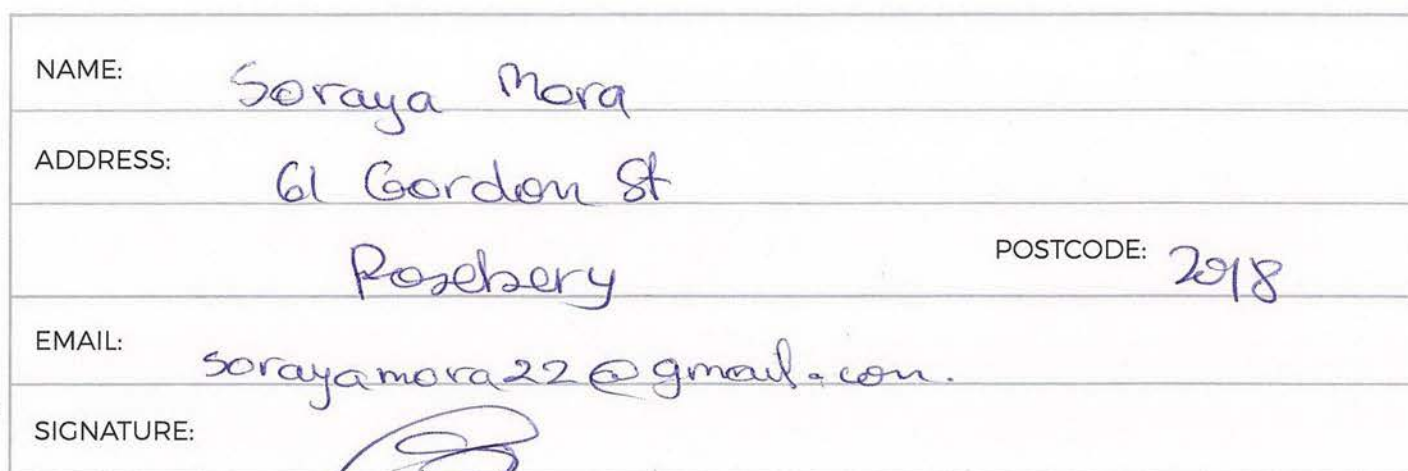 NAME: Soraya Mora
ADDRESS: 61 Gordon St
Rosebery POSTCODE: 2018
EMAIL: sorayamora22@gmail.com.
SIGNATURE: